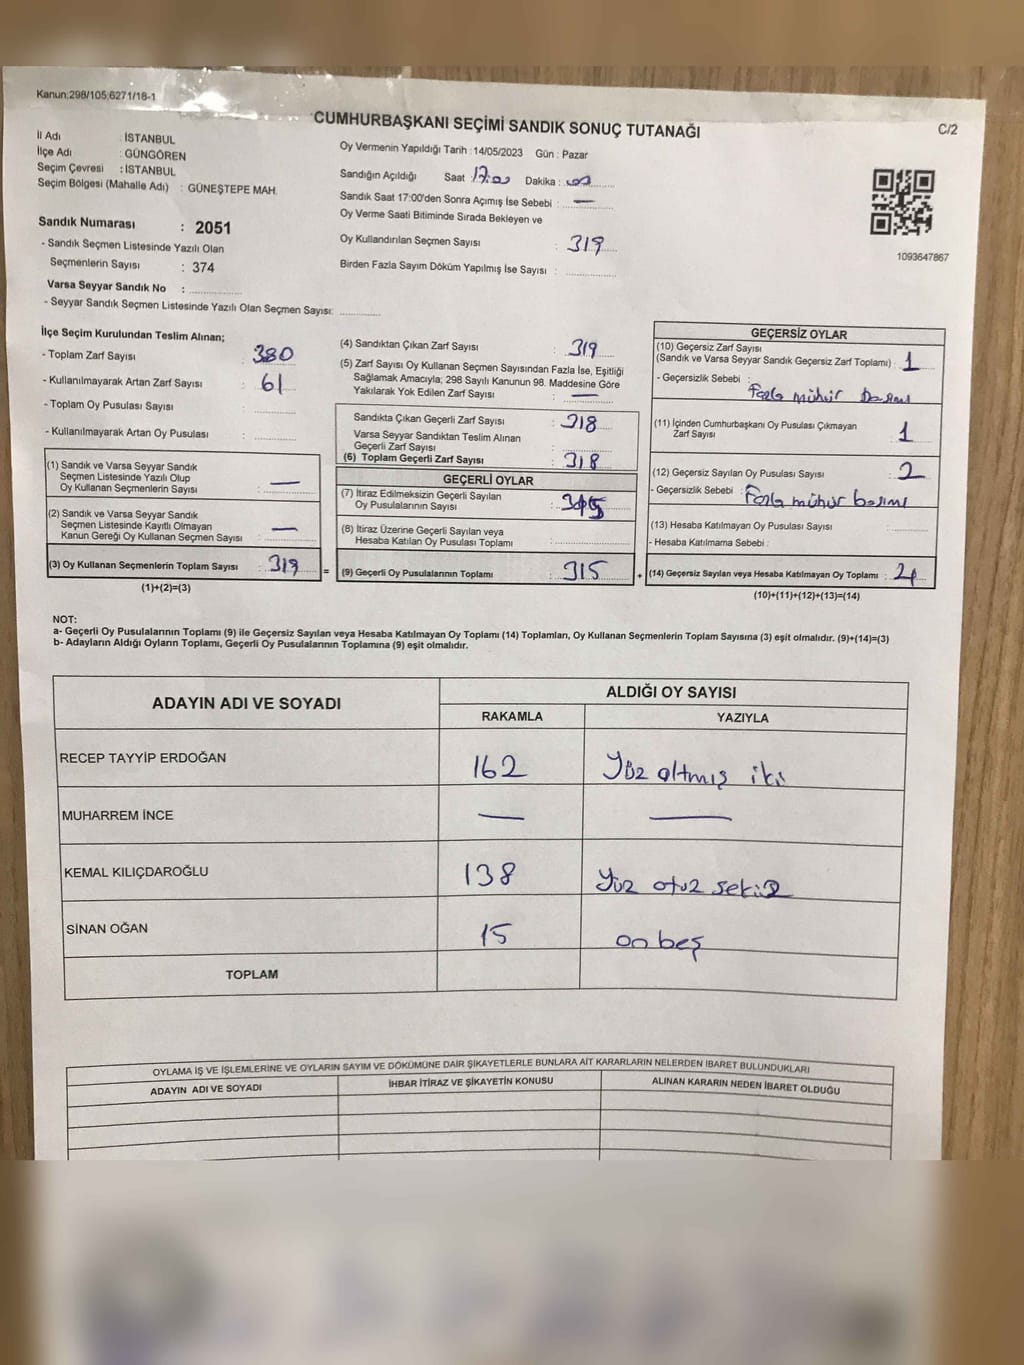 Kanun:298/105;6271/18-1
CUMHURBAŞKANI SEÇİMİ SANDIK SONUÇ TUTANAĞI
C/2
İl Adı : İSTANBUL
İlçe Adı : GÜNGÖREN
Seçim Çevresi : İSTANBUL
Seçim Bölgesi (Mahalle Adı) : GÜNEŞTEPE MAH.
Sandık Numarası : 2051
- Sandık Seçmen Listesinde Yazılı Olan
Seçmenlerin Sayısı : 374
Varsa Seyyar Sandık No :
- Seyyar Sandık Seçmen Listesinde Yazılı Olan Seçmen Sayısı:
Oy Vermenin Yapıldığı Tarih : 14/05/2023 Gün : Pazar
Sandığın Açıldığı Saat 17:00 Dakika : 00
Sandık Saat 17:00'den Sonra Açımış İse Sebebi : —
Oy Verme Saati Bitiminde Sırada Bekleyen ve
Oy Kullandırılan Seçmen Sayısı : 319
Birden Fazla Sayım Döküm Yapılmış İse Sayısı :
1093647867
İlçe Seçim Kurulundan Teslim Alınan;
- Toplam Zarf Sayısı : 380
- Kullanılmayarak Artan Zarf Sayısı : 61
- Toplam Oy Pusulası Sayısı :
- Kullanılmayarak Artan Oy Pusulası :
(1) Sandık ve Varsa Seyyar Sandık
Seçmen Listesinde Yazılı Olup
Oy Kullanan Seçmenlerin Sayısı : —
(2) Sandık ve Varsa Seyyar Sandık
Seçmen Listesinde Kayıtlı Olmayan
Kanun Gereği Oy Kullanan Seçmen Sayısı : —
(3) Oy Kullanan Seçmenlerin Toplam Sayısı : 319 =
(1)+(2)=(3)
(4) Sandıktan Çıkan Zarf Sayısı : 319
(5) Zarf Sayısı Oy Kullanan Seçmen Sayısından Fazla İse, Eşitliği
Sağlamak Amacıyla; 298 Sayılı Kanunun 98. Maddesine Göre
Yakılarak Yok Edilen Zarf Sayısı : —
Sandıkta Çıkan Geçerli Zarf Sayısı : 318
Varsa Seyyar Sandıktan Teslim Alınan
Geçerli Zarf Sayısı :
(6) Toplam Geçerli Zarf Sayısı : 318
GEÇERLİ OYLAR
(7) İtiraz Edilmeksizin Geçerli Sayılan
Oy Pusulalarının Sayısı : 315
(8) İtiraz Üzerine Geçerli Sayılan veya
Hesaba Katılan Oy Pusulası Toplamı :
(9) Geçerli Oy Pusulalarının Toplamı : 315 +
GEÇERSİZ OYLAR
(10) Geçersiz Zarf Sayısı
(Sandık ve Varsa Seyyar Sandık Geçersiz Zarf Toplamı) : 1
- Geçersizlik Sebebi :
Fazla mühür Basımı
(11) İçinden Cumhurbaşkanı Oy Pusulası Çıkmayan
Zarf Sayısı : 1
(12) Geçersiz Sayılan Oy Pusulası Sayısı : 2
- Geçersizlik Sebebi : Fazla mühür basımı
(13) Hesaba Katılmayan Oy Pusulası Sayısı :
- Hesaba Katılmama Sebebi :
(14) Geçersiz Sayılan veya Hesaba Katılmayan Oy Toplamı : 4
(10)+(11)+(12)+(13)=(14)
NOT:
a- Geçerli Oy Pusulalarının Toplamı (9) ile Geçersiz Sayılan veya Hesaba Katılmayan Oy Toplamı (14) Toplamları, Oy Kullanan Seçmenlerin Toplam Sayısına (3) eşit olmalıdır. (9)+(14)=(3)
b- Adayların Aldığı Oyların Toplamı, Geçerli Oy Pusulalarının Toplamına (9) eşit olmalıdır.
ADAYIN ADI VE SOYADI
ALDIĞI OY SAYISI
RAKAMLA YAZIYLA
RECEP TAYYİP ERDOĞAN 162 Yüz altmış iki
MUHARREM İNCE — —
KEMAL KILIÇDAROĞLU 138 Yüz otuz sekiz
SİNAN OĞAN 15 on beş
TOPLAM
OYLAMA İŞ VE İŞLEMLERİNE VE OYLARIN SAYIM VE DÖKÜMÜNE DAİR ŞİKAYETLERLE BUNLARA AİT KARARLARIN NELERDEN İBARET BULUNDUKLARI
ADAYIN ADI VE SOYADI İHBAR İTİRAZ VE ŞİKAYETİN KONUSU ALINAN KARARIN NEDEN İBARET OLDUĞU